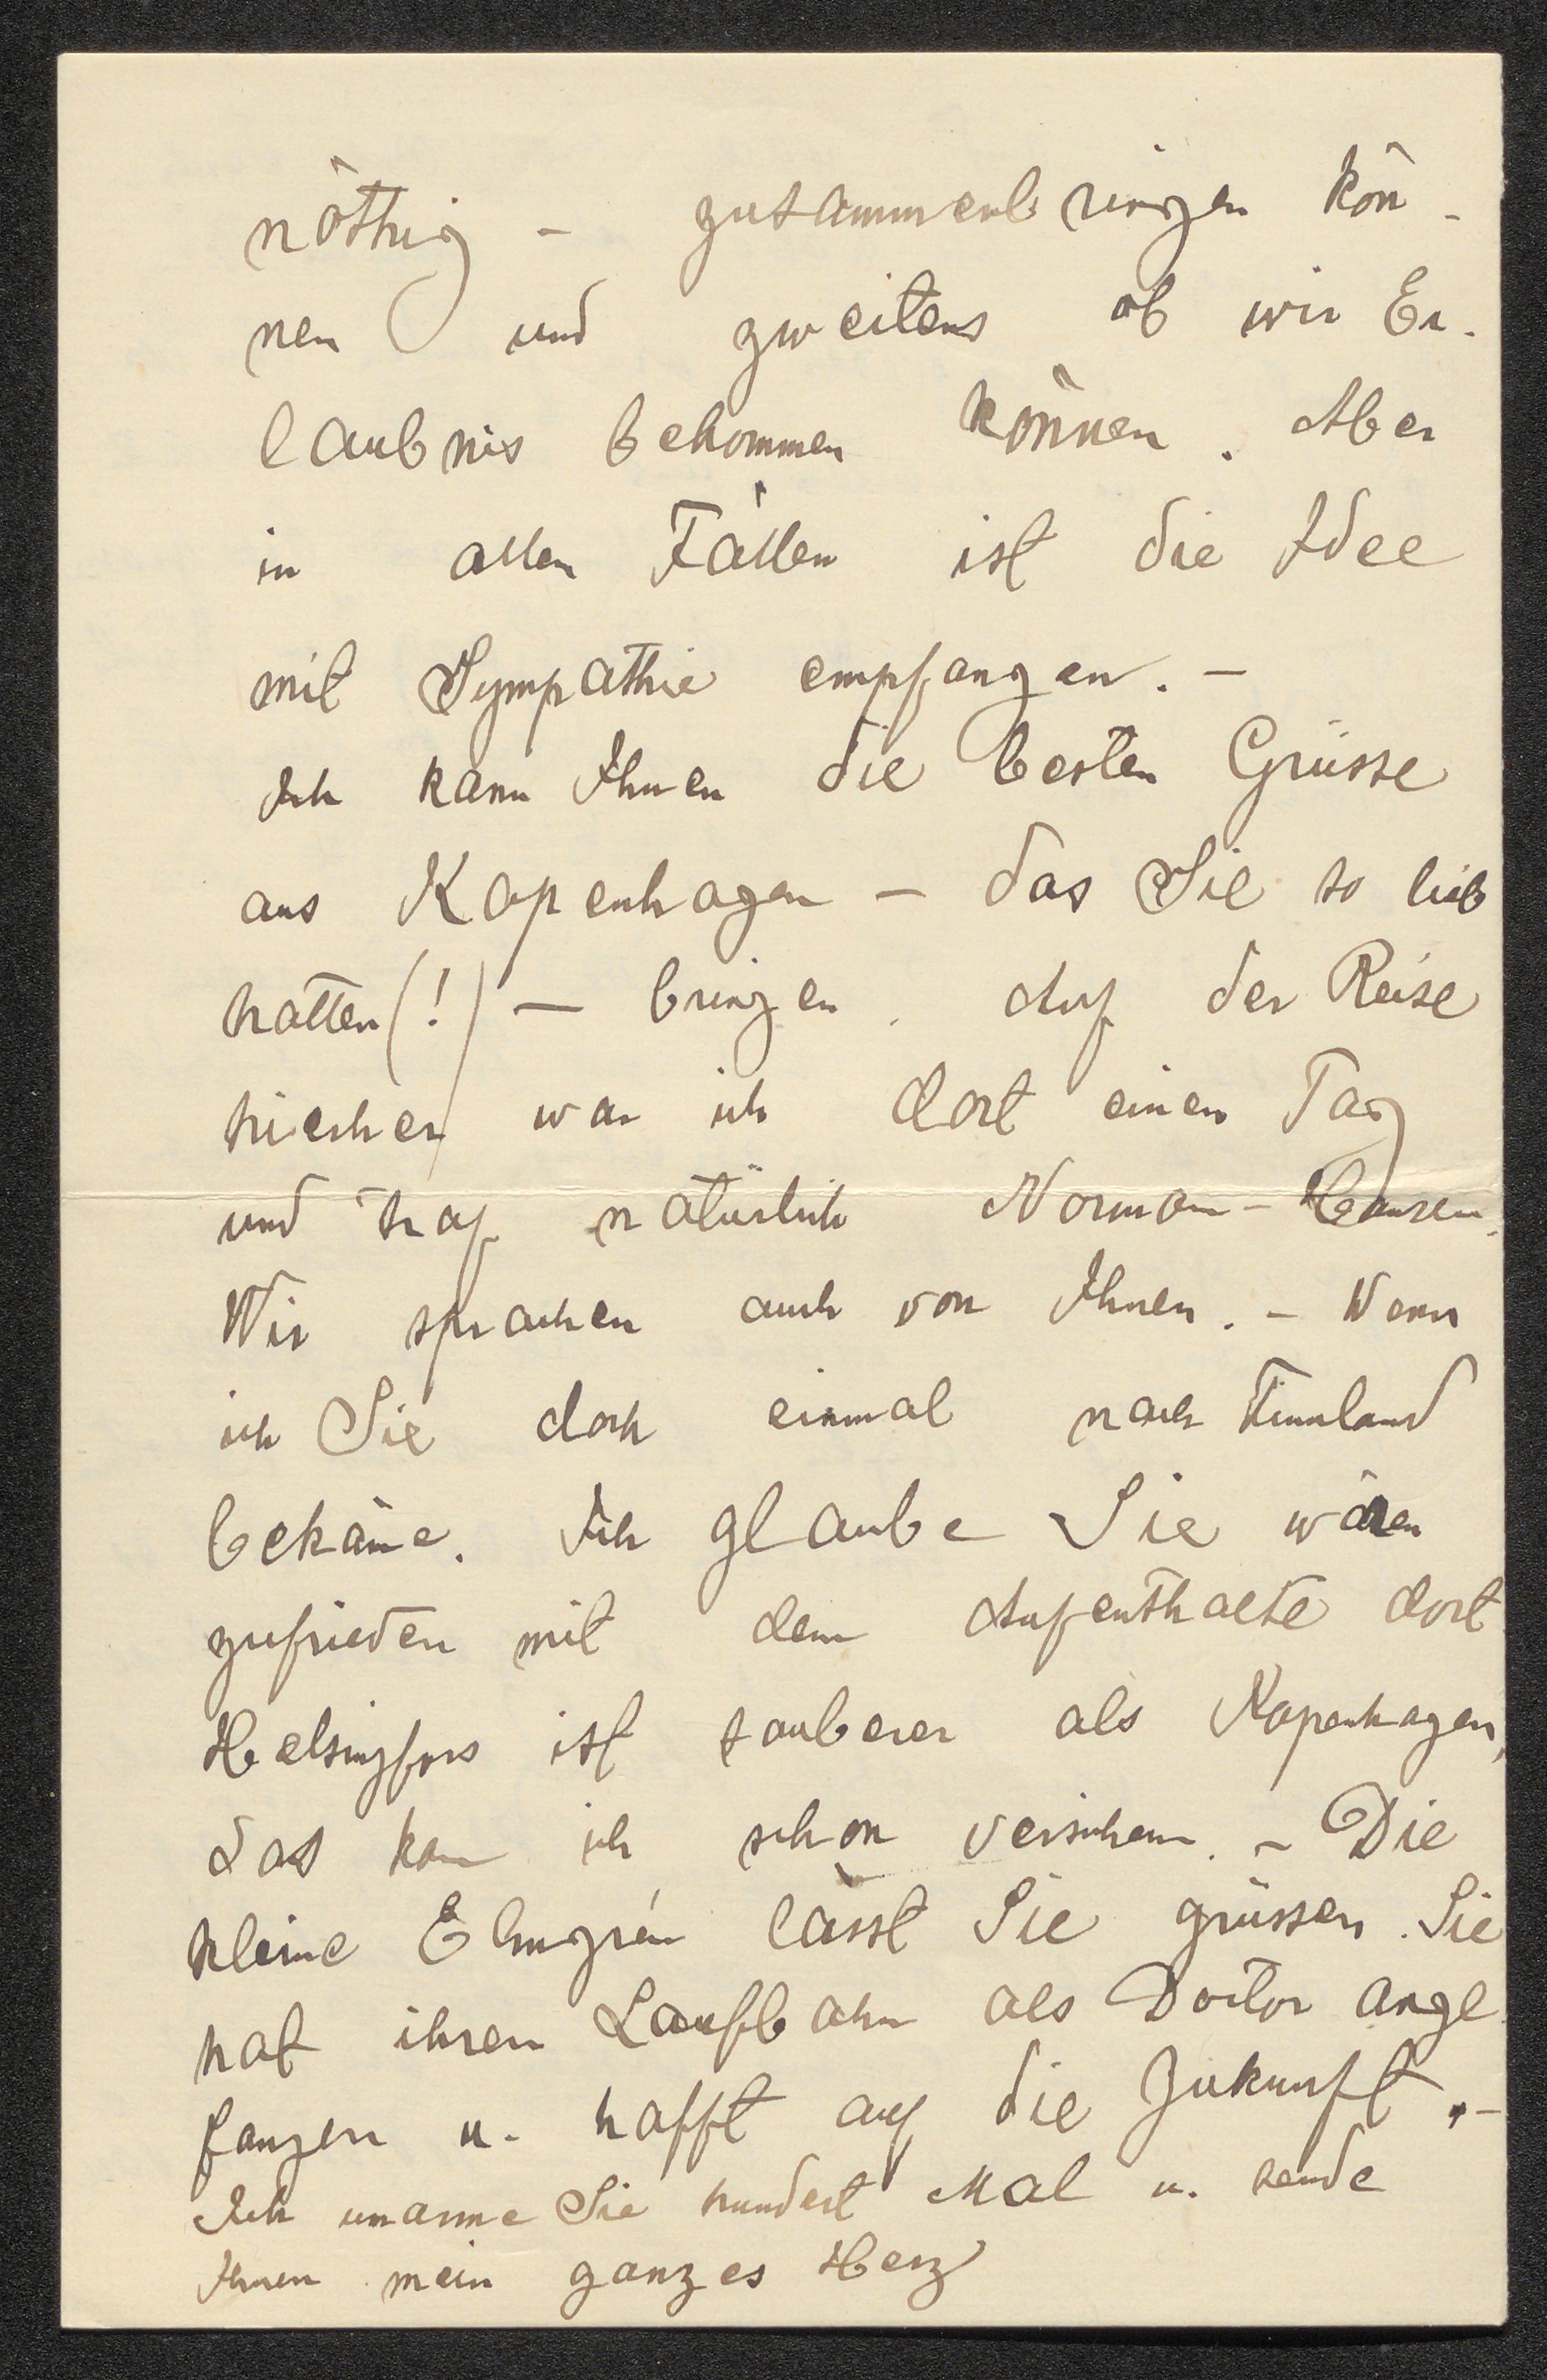 nöthig – zusammenbringen kön-
nen und zweitens ob wir Er-
laubnis bekommen können. Aber
in allen Fällen ist die Idee
mit Sympathie empfangen. –
Ich kann Ihnen die besten Grüsse
aus Kopenhagen – das Sie so lieb
hatten (!) – bringen. Auf der Reise
hierher war ich dort einen Tag
und traf natürlich Norman-Hansen.
Wir sprachen auch von Ihnen. – Wenn
ich Sie doch einmal nach Finnland
bekäme. Ich glaube Sie wären
zufrieden mit dem Aufenthalte dort
Helsingfors ist sauberer als Kopenhagen,
das kan ich schon versichern. – Die
kleine Elmgrén lässt Sie grüssen. Sie
hat ihren Laufbahn als Doctor ange-
fangen u. hofft auf die Zukunft. –
Ich umarme Sie hundert Mal u. sende
Ihnen mein ganzes Herz